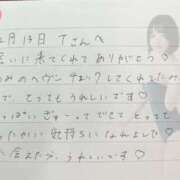 2月13日 Tさんへ
会いに来てくれてありがとう♡
みのヘヴンチェックしてくれてたみ
で、とってもうれしいです♡
っぱいぎゅーってできて とって
たかい気持ちになれました♡
会えたら、うれしいです♡